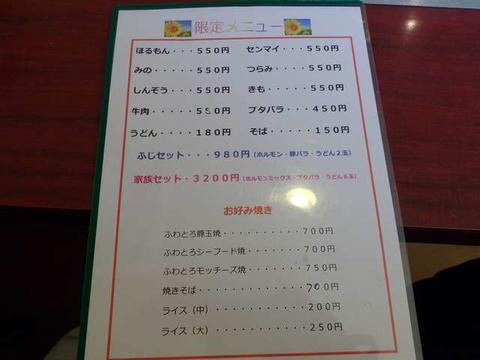 限定メニュー
ほるもん・・・550円 センマイ・・・550円
みの・・・・・550円 つらみ・・・・550円
しんぞう・・・550円 きも・・・・・550円
牛肉・・・・・550円 ブタバラ・・・450円
うどん・・・・180円 そば・・・・・150円
ふじセット・・・980円(ホルモン・豚バラ・うどん2玉)
家族セット・3200円(ホルモンミックス・ブタバラ・うどん6玉)
お好み焼き
ふわとろ豚玉焼・・・・・・・・・・700円
ふわとろシーフード焼・・・・・・・700円
ふわとろモッチーズ焼・・・・・・・750円
焼きそば・・・・・・・・・・・・・700円
ライス(中)・・・・・・・・・・・200円
ライス(大)・・・・・・・・・・・250円